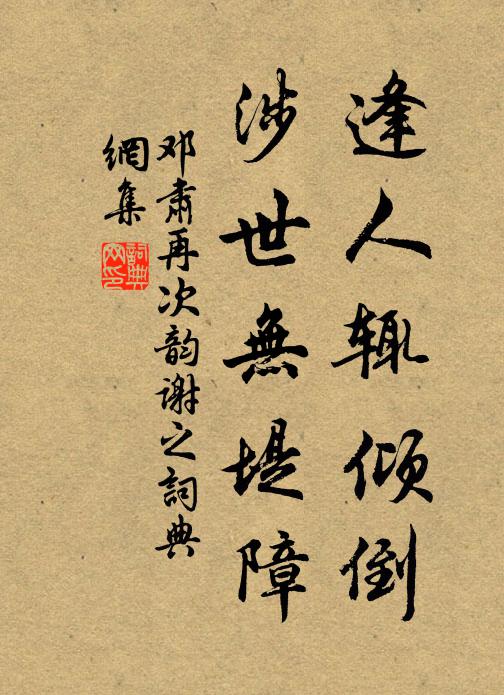 逢人辄倾倒
涉世無堤障
邓肅再次韵谢之詞典
網集
詞典網印